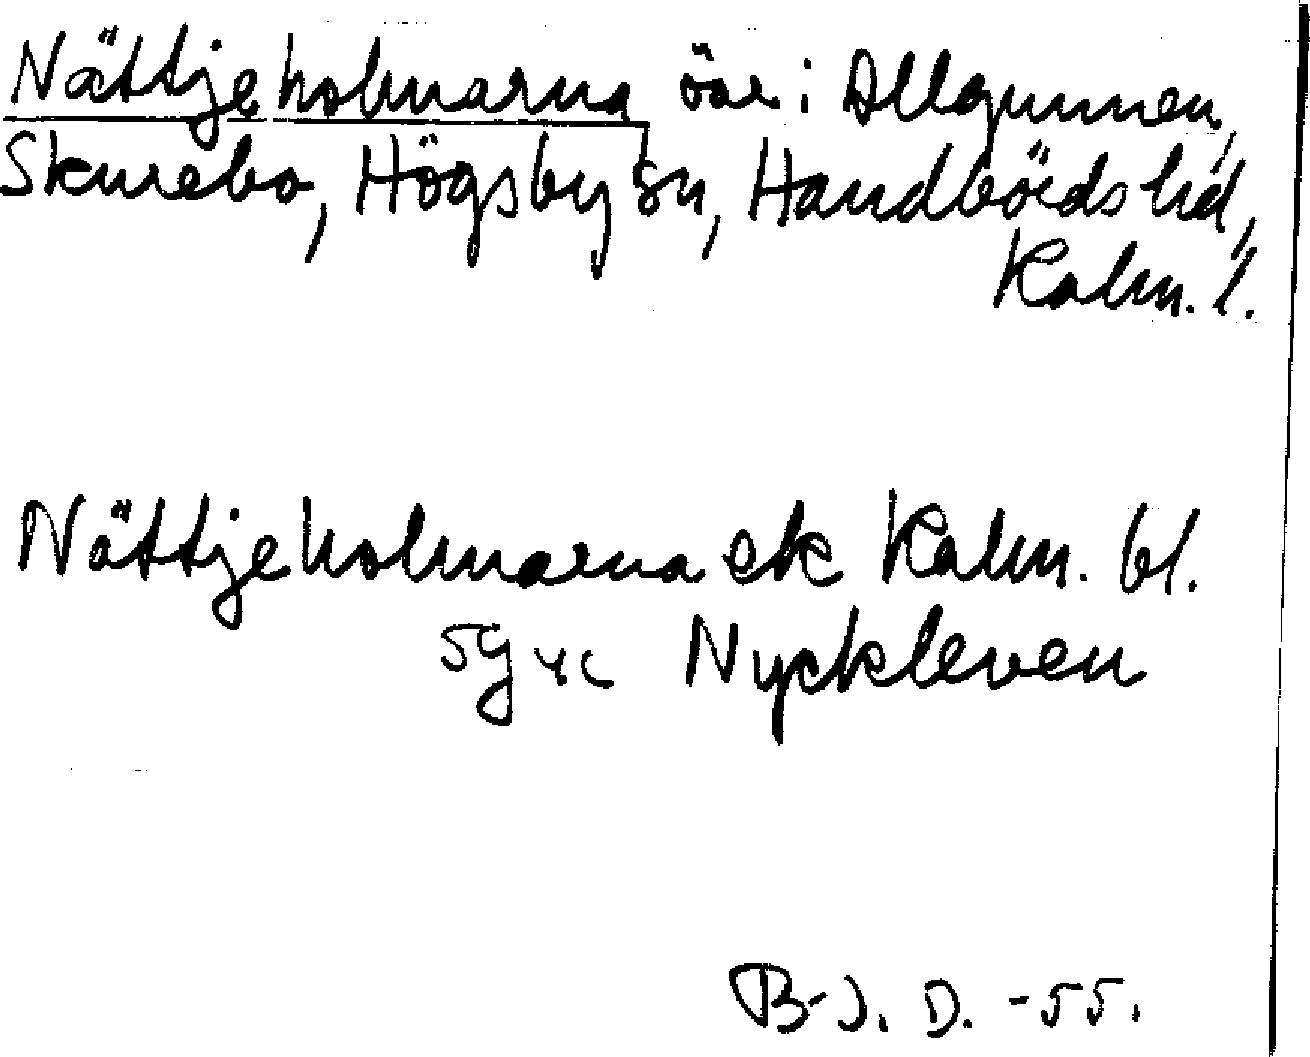 Nättjeholmarna, öar i Allgunnen,
Skurebo, Högsby sn, Handbörds hd,
Kalm. l.
Nättjeholmarna ek Kalm. bl.
5g4c Nyckleven
B-J. D. -55.